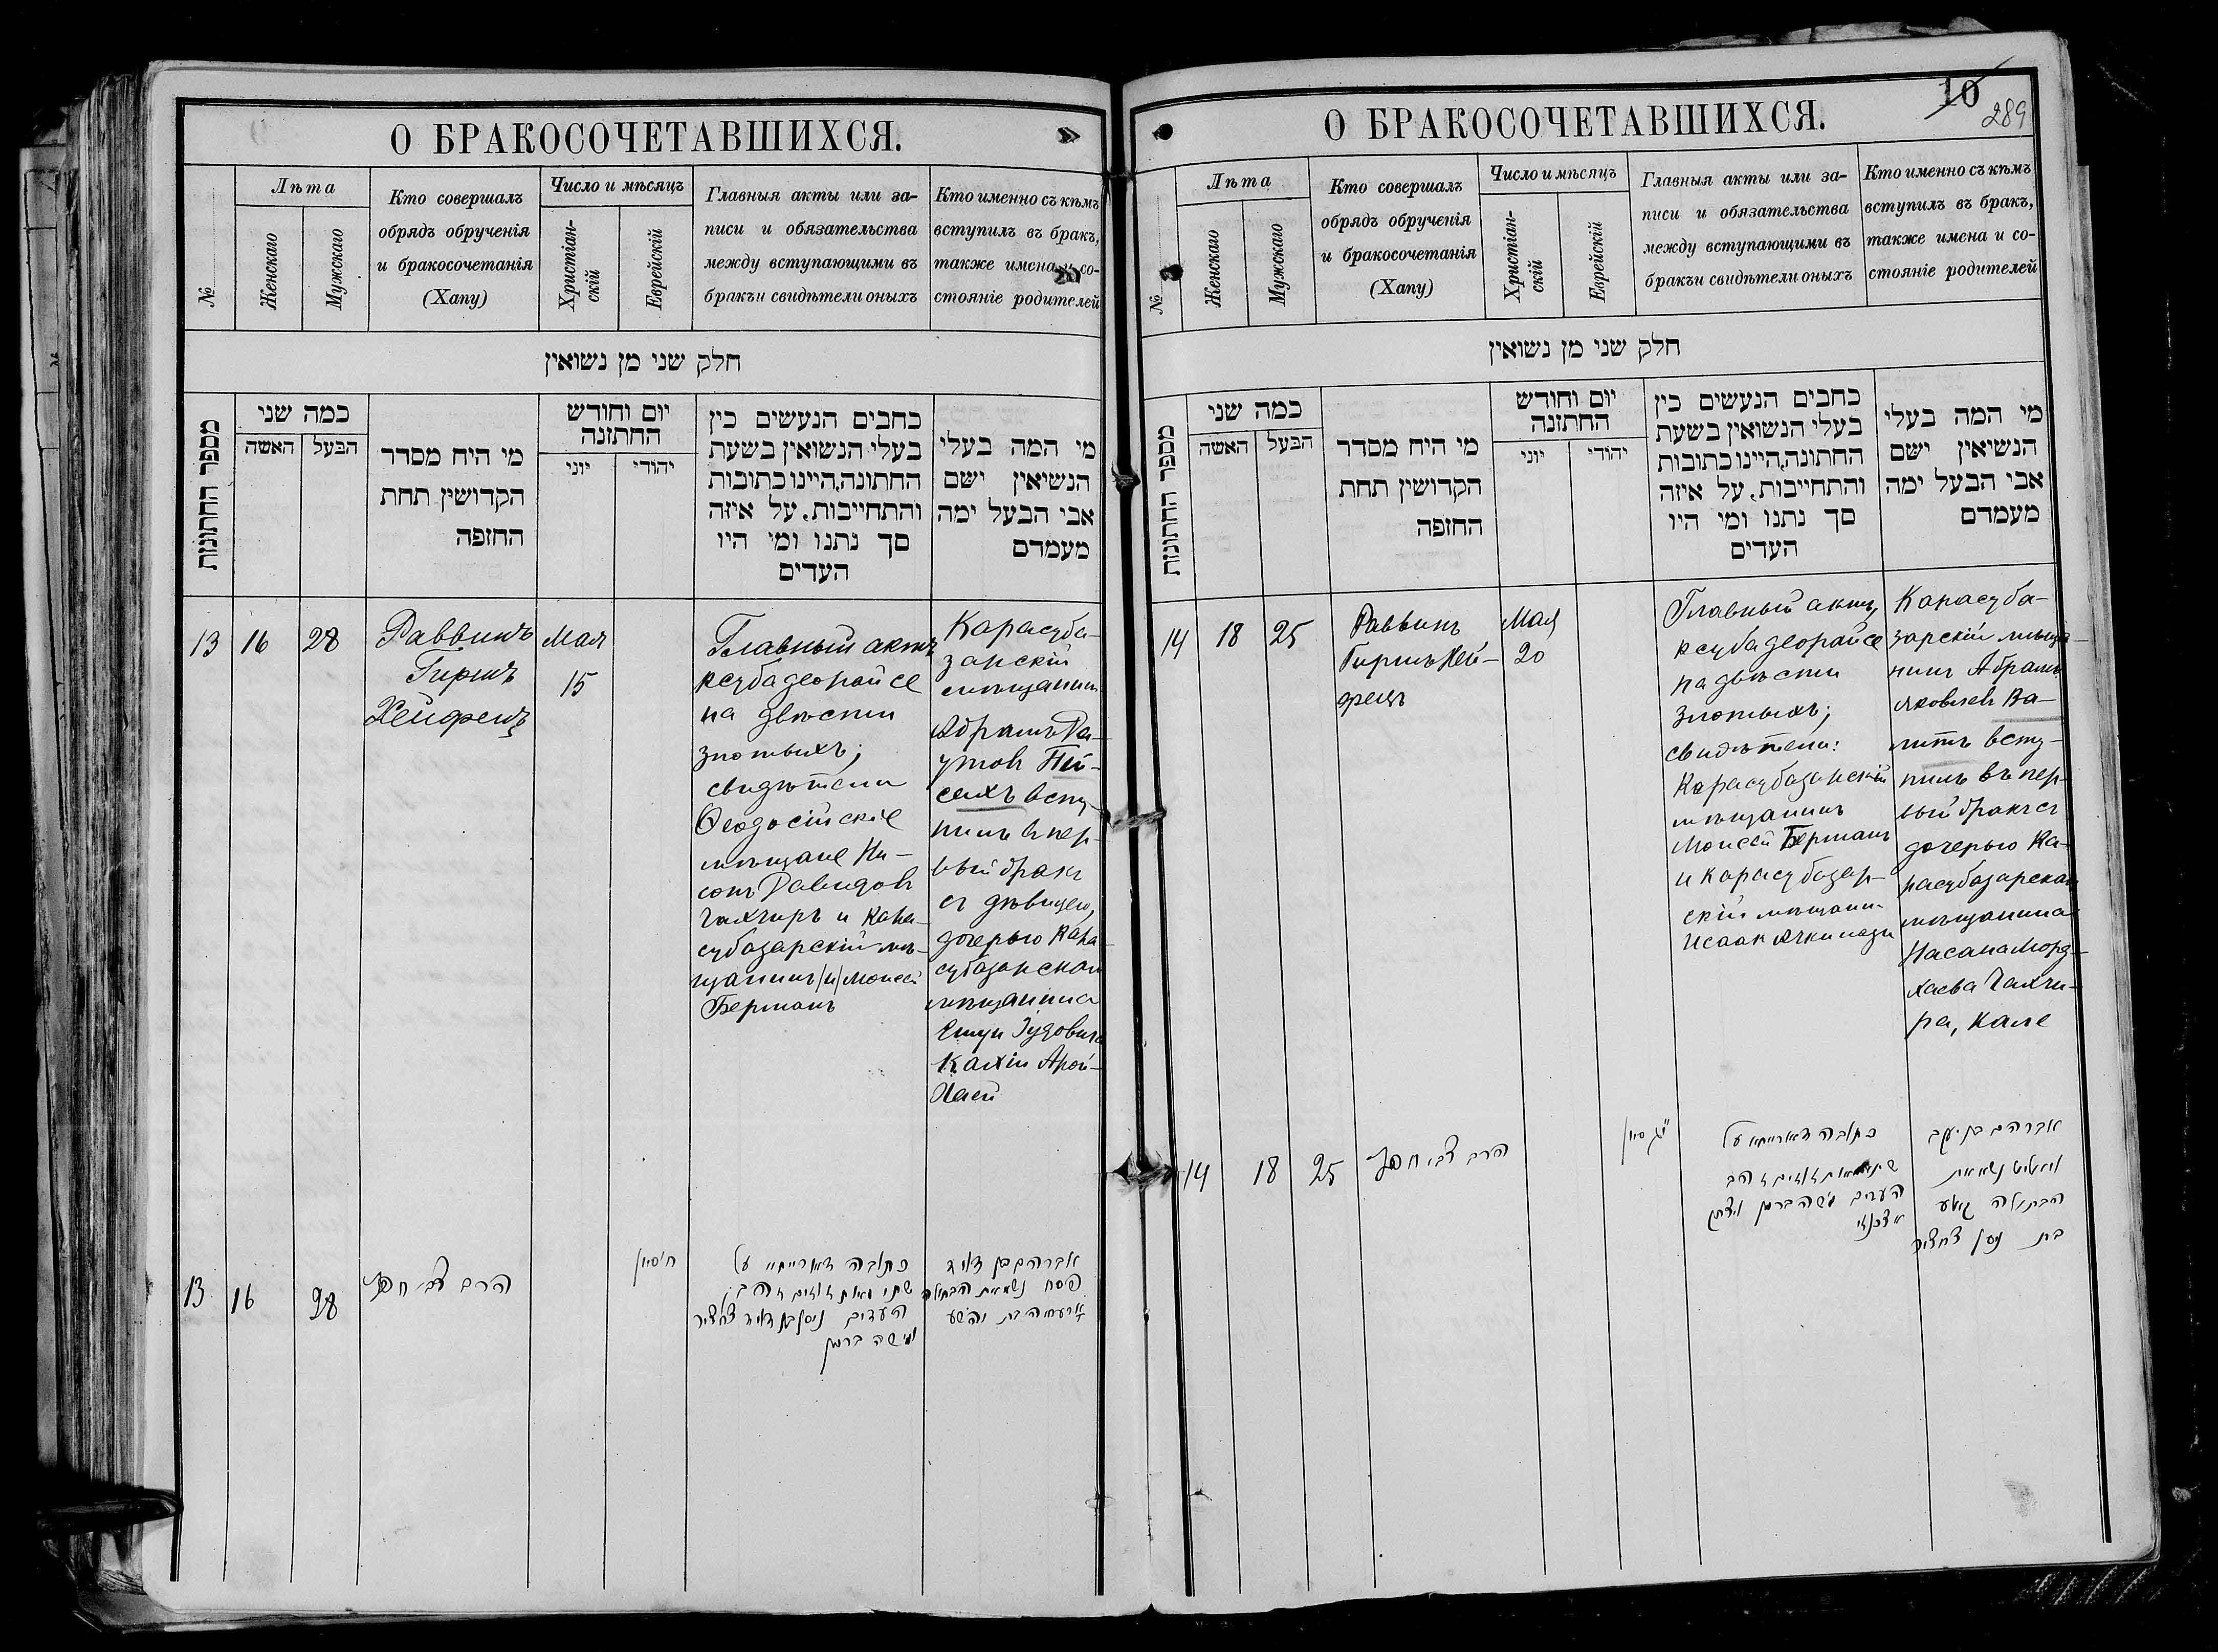 О БРАКОСОЧЕТАВШИХСЯ.
№
Лѣта
Женскаго
Мужскаго
Кто совершалъ
обрядъ обрученія
и бракосочетанія
(Хапу)
Число и мѣсяцъ
Христіан-
скій
Еврейскій
Главныя акты или за-
писи и обязательства
между вступающими въ
бракъи свидѣтели оныхъ
Кто именно съ кѣмъ
вступилъ въ бракъ,
также имена и со-
стояніе родителей
חלק שני מן נשואין
מספר החתונות
כמה שני
האשה
הבעל
מי היח מסדר
הקדושין תחת
החופה
יום וחודש
החתונה
יוני
יהודי
כחבים הנעשים כין
בעלי הנשואין בשעת
החתונה,היינו כתובות
והתחייבות, על איזה
סך נתנו ומי היו
העדים
מי המה בעלי
הנשיאין ישם
אבי הבעל ימה
מעמדם
13
16
28
Раввинъ
Гиршъ
Хейфецъ
Мая
15
Главный актъ
ксуба деорайсе
на двѣсти
злотыхъ;
свидѣтели
Ѳеодосійскіе
мѣщане Ни-
сонъ Давидовъ
Чахчиръ и Кара-
субазарскій мѣ-
щанинъ /и/ Моисей
Берманъ
Карасуба-
зарскій
мѣщанинъ
Абрамъ Да-
удовъ Пей-
сахъ всту-
пилъ въ пер-
вый бракъ
съ дѣвицею,
дочерью Кара-
субазарскаго
мѣщанина
Ешуи Іудовича
13
16
28
הרב צבי חפץ
ח׳ סיון
כתובה דאורייתא על
שתי מאות זוזים זהב:
העדים ניסן בן דאוד
ומשה ברמן
אברהם בן דאוד
פיסח נשא את הבתולה
בת יהושע
О БРАКОСОЧЕТАВШИХСЯ.
10
289
№
Лѣта
Женскаго
Мужскаго
Кто совершалъ
обрядъ обрученія
и бракосочетанія
(Хапу)
Число и мѣсяцъ
Христіан-
скій
Еврейскій
Главныя акты или за-
писи и обязательства
между вступающими въ
бракъи свидѣтели оныхъ
Кто именно съ кѣмъ
вступилъ въ бракъ,
также имена и со-
стояніе родителей
חלק שני מן נשואין
מספר החתונות
כמה שני
האשה
הבעל
מי היח מסדר
הקדושין תחת
החופה
יום וחודש
החתונה
יוני
יהודי
כחבים הנעשים כין
בעלי הנשואין בשעת
החתונה,היינו כתובות
והתחייבות, על איזה
סך נתנו ומי היו
העדים
מי המה בעלי
הנשיאין ישם
אבי הבעל ימה
מעמדם
14
18
25
Раввинъ
Гиршъ Хей-
фецъ
Мая
20
Главный актъ,
ксуба деорайсе
на двѣсти
злотыхъ;
свидѣтели:
Карасубазарскій
мѣщанинъ
Моисей Берманъ
и Карасубазар-
скій мѣщанинъ
Исаакъ Ачкинази
Карасуба-
зарскій мѣща-
нинъ Абрамъ
Яковлевъ Ва-
литъ всту-
пилъ въ пер-
вый бракъ съ
дочерью Ка-
расубазарскаго
мѣщанина
Насана Морд-
хаева Чахчи-
ра, Кале
14
18
25
הרב צבי חפץ
י״ג סיון
כתובה דאורייתא על
שתי מאות זוזים זהב
העדים משה ברמן ויצחק
אשכנזי
אברהם בן יעקב
נשא את
הבתולה
בת